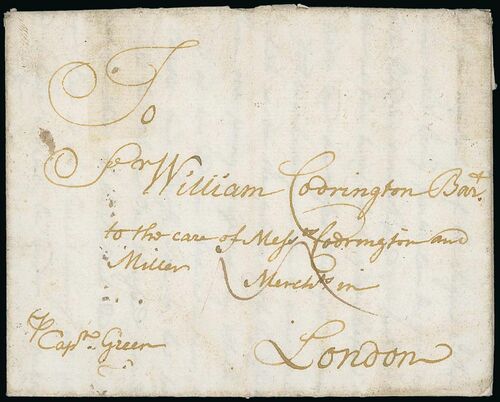 To
Ser William Codrington Bart.
to the care of Messrs Codrington and
Miller Mercht.s in
London
⅌ Captn. Green